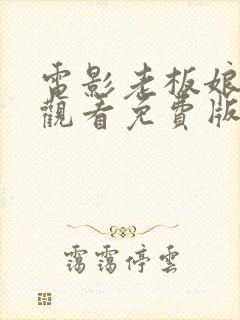 電影老板娘
觀看免費版
靄靄停雲